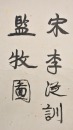 宋李泛訓
監牧圖